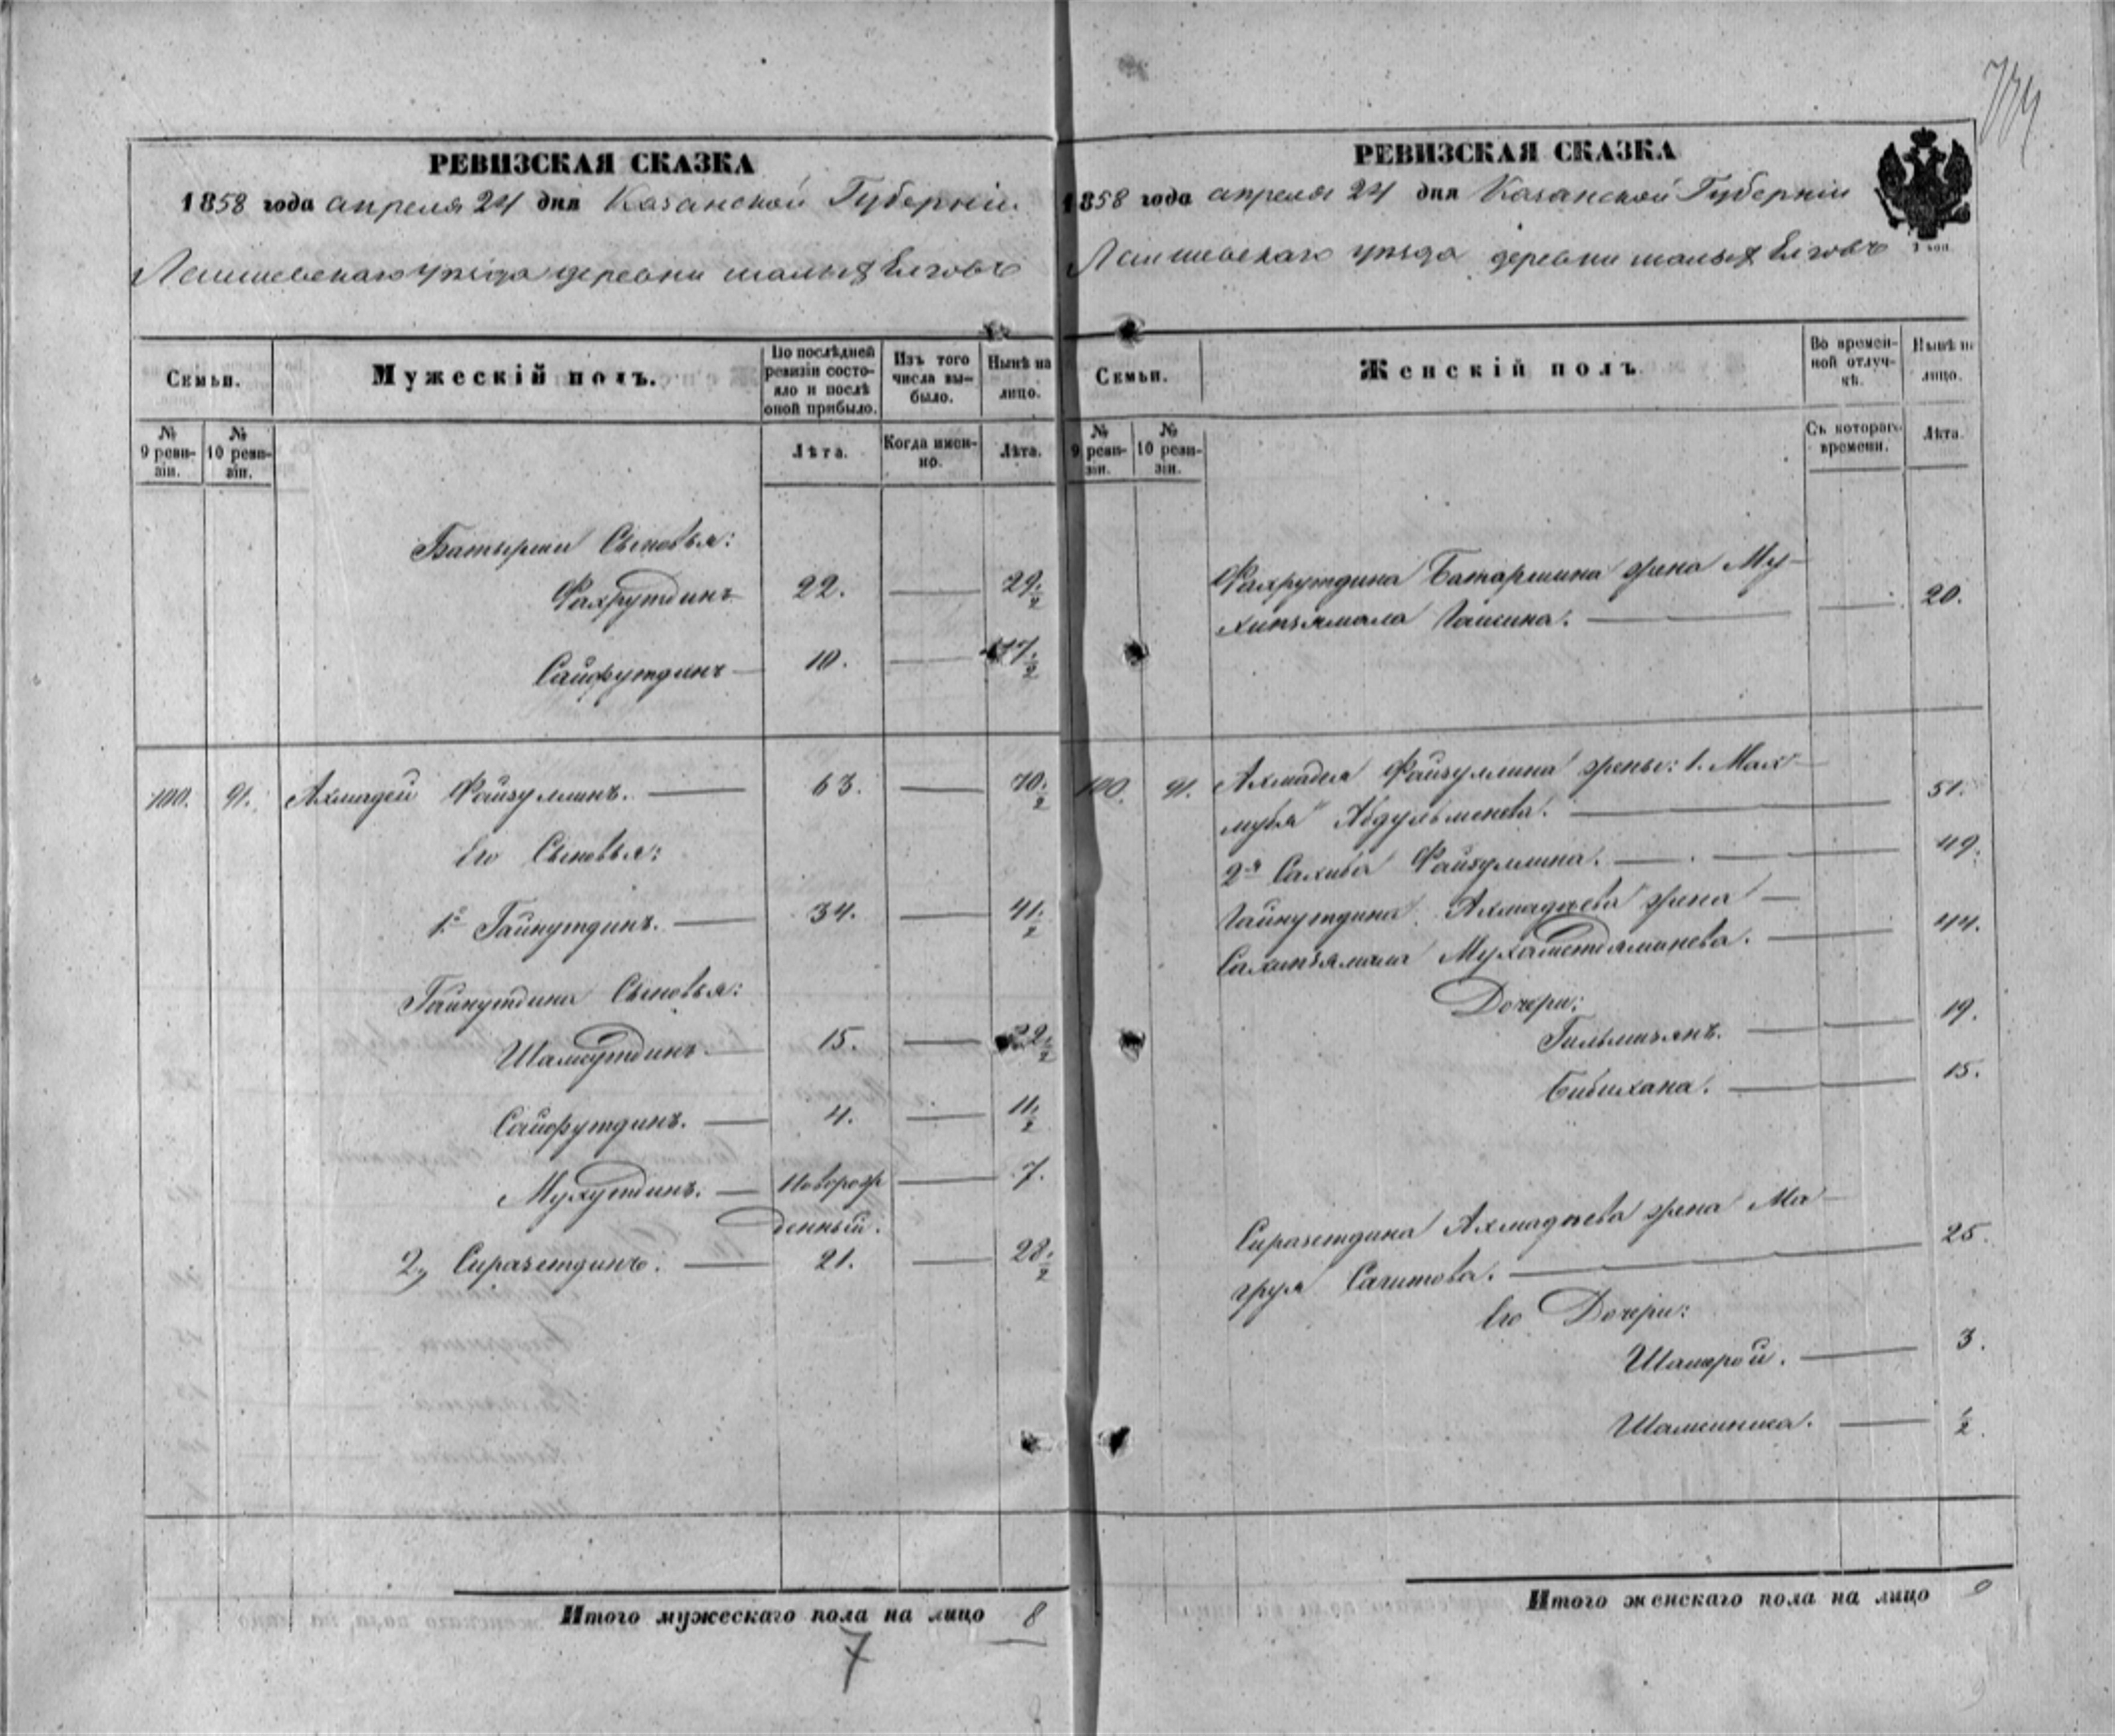 774
РЕВИЗСКАЯ СКАЗКА
1858 года апреля 24 дня Казанской Губернiи
Лаишевскаго уѣзда деревни малыхъ Елговъ
Семьи.
Мужескій полъ.
По послѣдней ревизіи состояло и послѣ оной прибыло.
Изъ того числа выбыло.
Нынѣ на лицо.
№ 9 ревизіи.
№ 10 ревизіи.
Лѣта.
Когда именно.
Лѣта.
Батырши Сыновья:
Фахрутдинъ 22. — 29 1/2
Сайфутдинъ — 10. — 17 1/2
100. 91. Ахмадей Файзуллинъ. — 63. — 70 1/2
Его Сыновья:
1й Гайнутдинъ. — 34. — 41 1/2
Гайнутдина Сыновья:
Шамсутдинъ — 15. — 22 1/2
Сайфутдинъ. — 4. — 11 1/2
Мухутдинъ. — Новорож — 7.
денный.
2й Сиразетдинъ. — 21. — 28 1/2
Итого мужескаго пола на лицо 8
7
РЕВИЗСКАЯ СКАЗКА
1858 года апреля 24 дня Казанской Губернiи
Лаишевскаго уѣзда деревни малыхъ Елговъ
Семьи.
Женскій полъ.
Во временной отлучкѣ.
Нынѣ на лицо.
№ 9 ревизіи.
№ 10 ревизіи.
Съ котораго времени.
Лѣта.
Фахрутдина Батаршина жена Му-
хипзямала — 20.
100. 91. Ахмадея Файзуллина жены: 1. Мах-
мубя — 51.
2я Сахиба Файзуллина. — 49.
Гайнутдина Ахмадѣева жена —
Сахипзямала Мухаметдяминева. — 44.
Дочери:
Гильмизянъ. — 19.
Бибихана. — 15.
Сиразетдина Ахмадѣева жена Ма-
груя Сагитова. — 25.
Его Дочери:
— 3.
— 1/2.
Итого женскаго пола на лицо 9